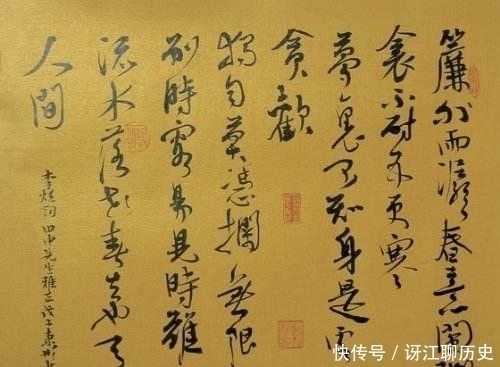 簾外雨潺潺春意闌
衾不耐五更寒
夢裏不知身是客
貪歡
獨自莫憑欄無限
別時容易見時難
流水落花春去也天
人間
李煜詞 田中先生雅正
快传号/讶江聊历史